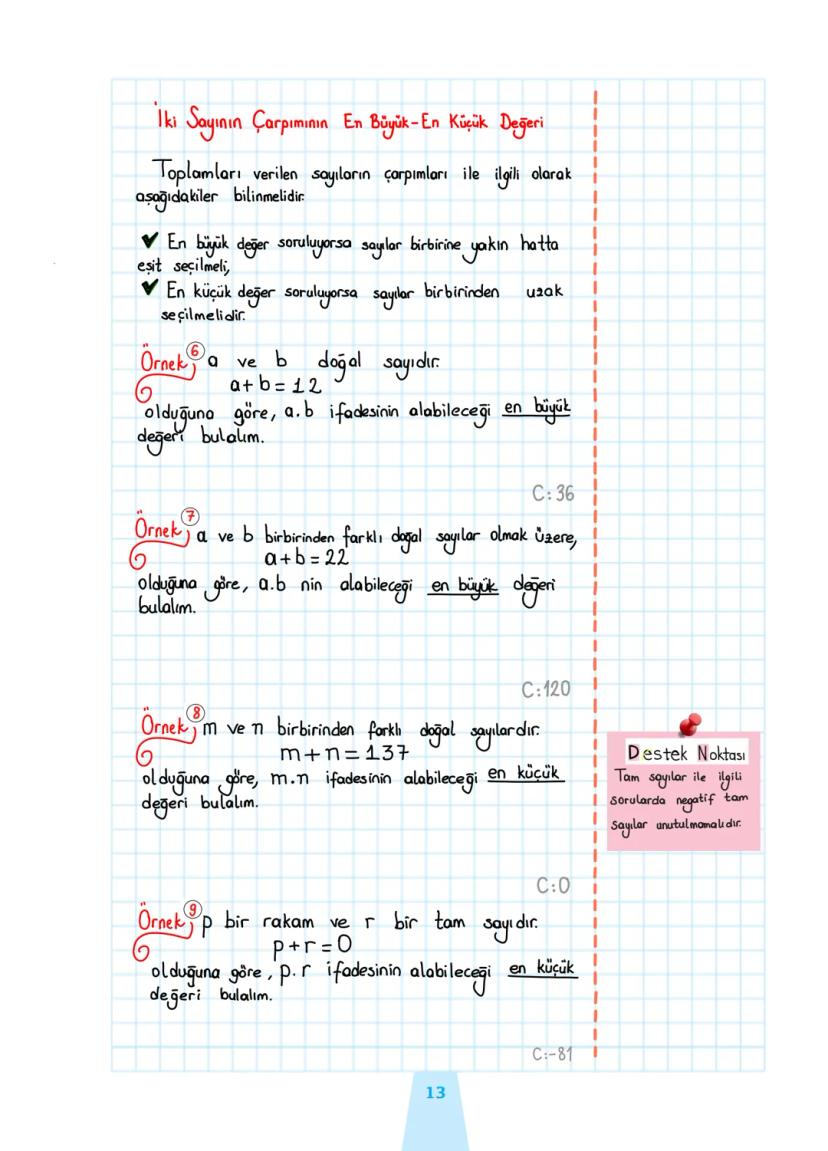 İki Sayının Çarpımının En Büyük-En Küçük Değeri
Toplamları verilen sayıların çarpımları ile ilgili olarak
aşağıdakiler bilinmelidir.
✔ En büyük değer soruluyorsa sayılar birbirine yakın hatta
eşit seçilmeli,
✔ En küçük değer soruluyorsa sayılar birbirinden uzak
seçilmelidir.
Örnek 6 a ve b doğal sayıdır.
a+b=12
olduğuna göre, a.b ifadesinin alabileceği en büyük
değeri bulalım.
C:36
Örnek 7 a ve b birbirinden farklı doğal sayılar olmak üzere,
a+b=22
olduğuna göre, a.b nin alabileceği en büyük değeri
bulalım.
C:120
Örnek 8 m ve n birbirinden farklı doğal sayılardır.
m+n=137
olduğuna göre, m.n ifadesinin alabileceği en küçük
değeri bulalım.
C:0
Destek Noktası
Tam sayılar ile ilgili
sorularda negatif tam
sayılar unutulmamalıdır.
Örnek 9 p bir rakam ve r bir tam sayıdır.
p+r=0
olduğuna göre, p.r ifadesinin alabileceği en küçük
değeri bulalım.
C:-81
13